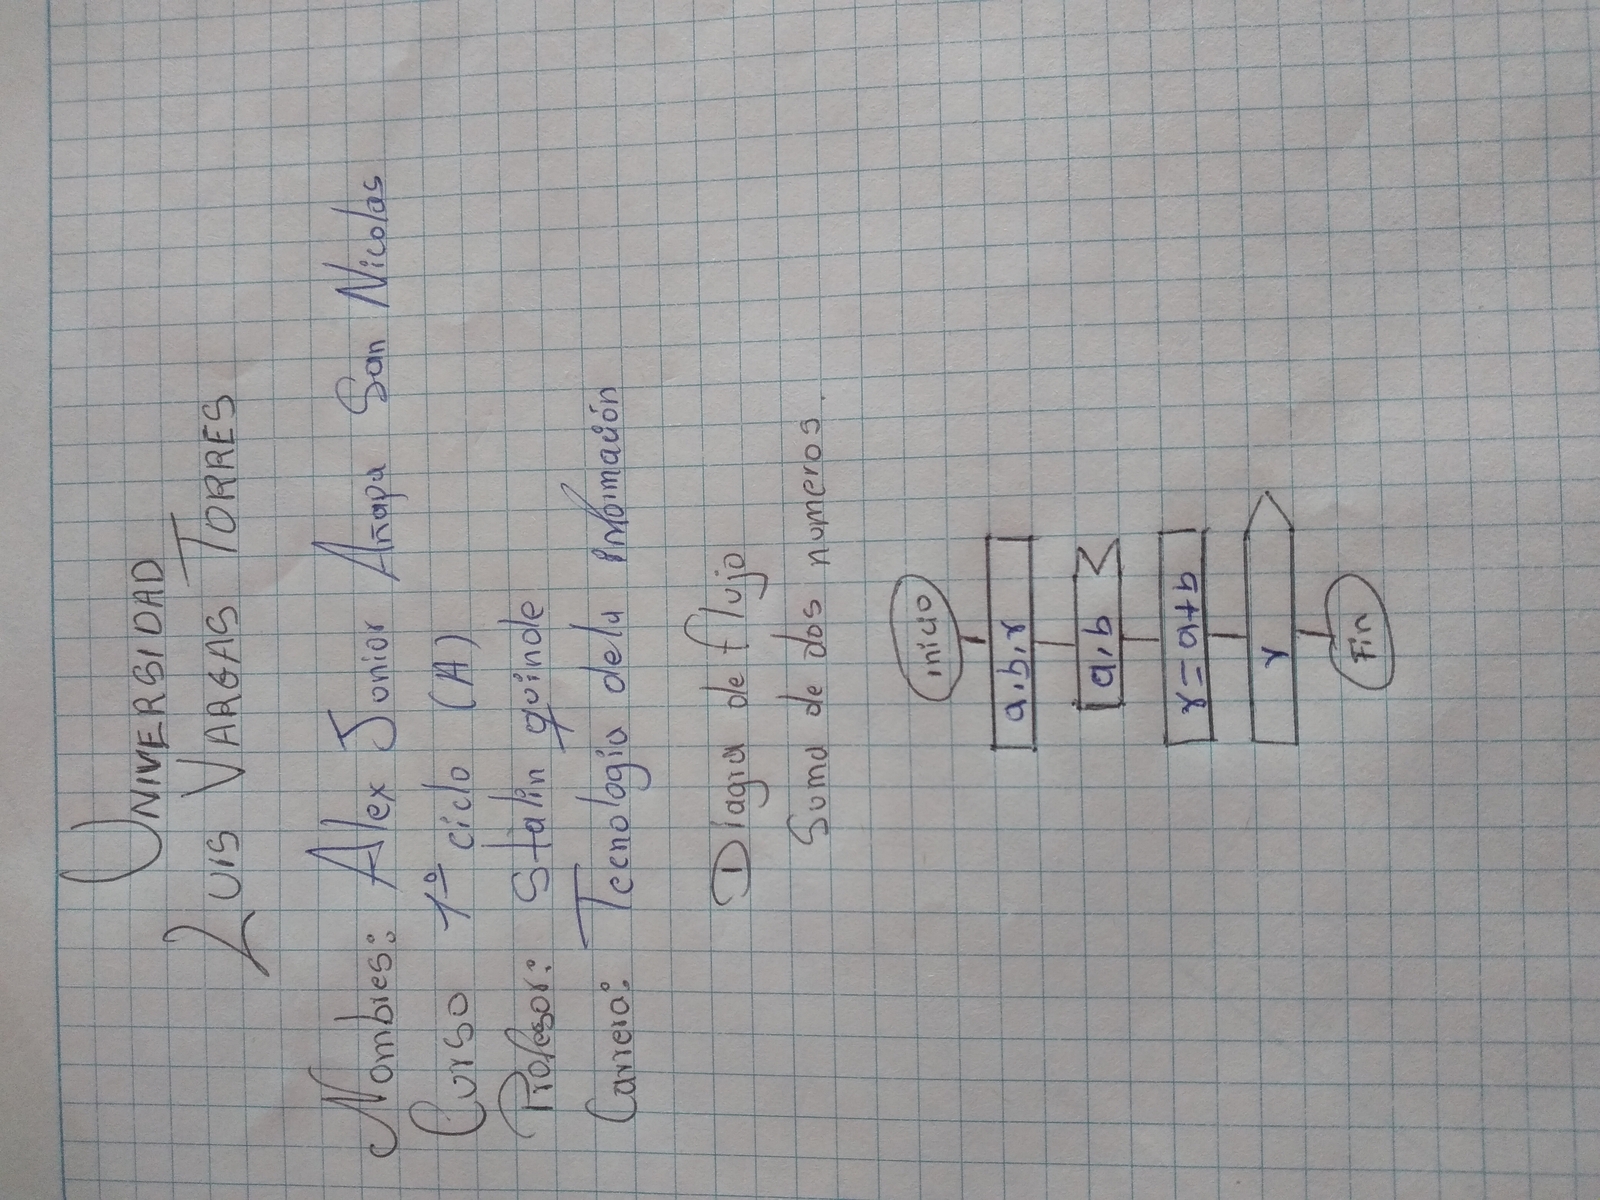 UNIVERSIDAD
LUIS VARGAS TORRES
Nombres: Alex Junior Añapa San Nicolas
Curso 1º ciclo (A)
Profesor: Stalin quinde
Carrera: Tecnologia dela información
Diagra de flujo
Suma de dos numeros.
inicio
a,b,r
a,b
r=a+b
r
Fin